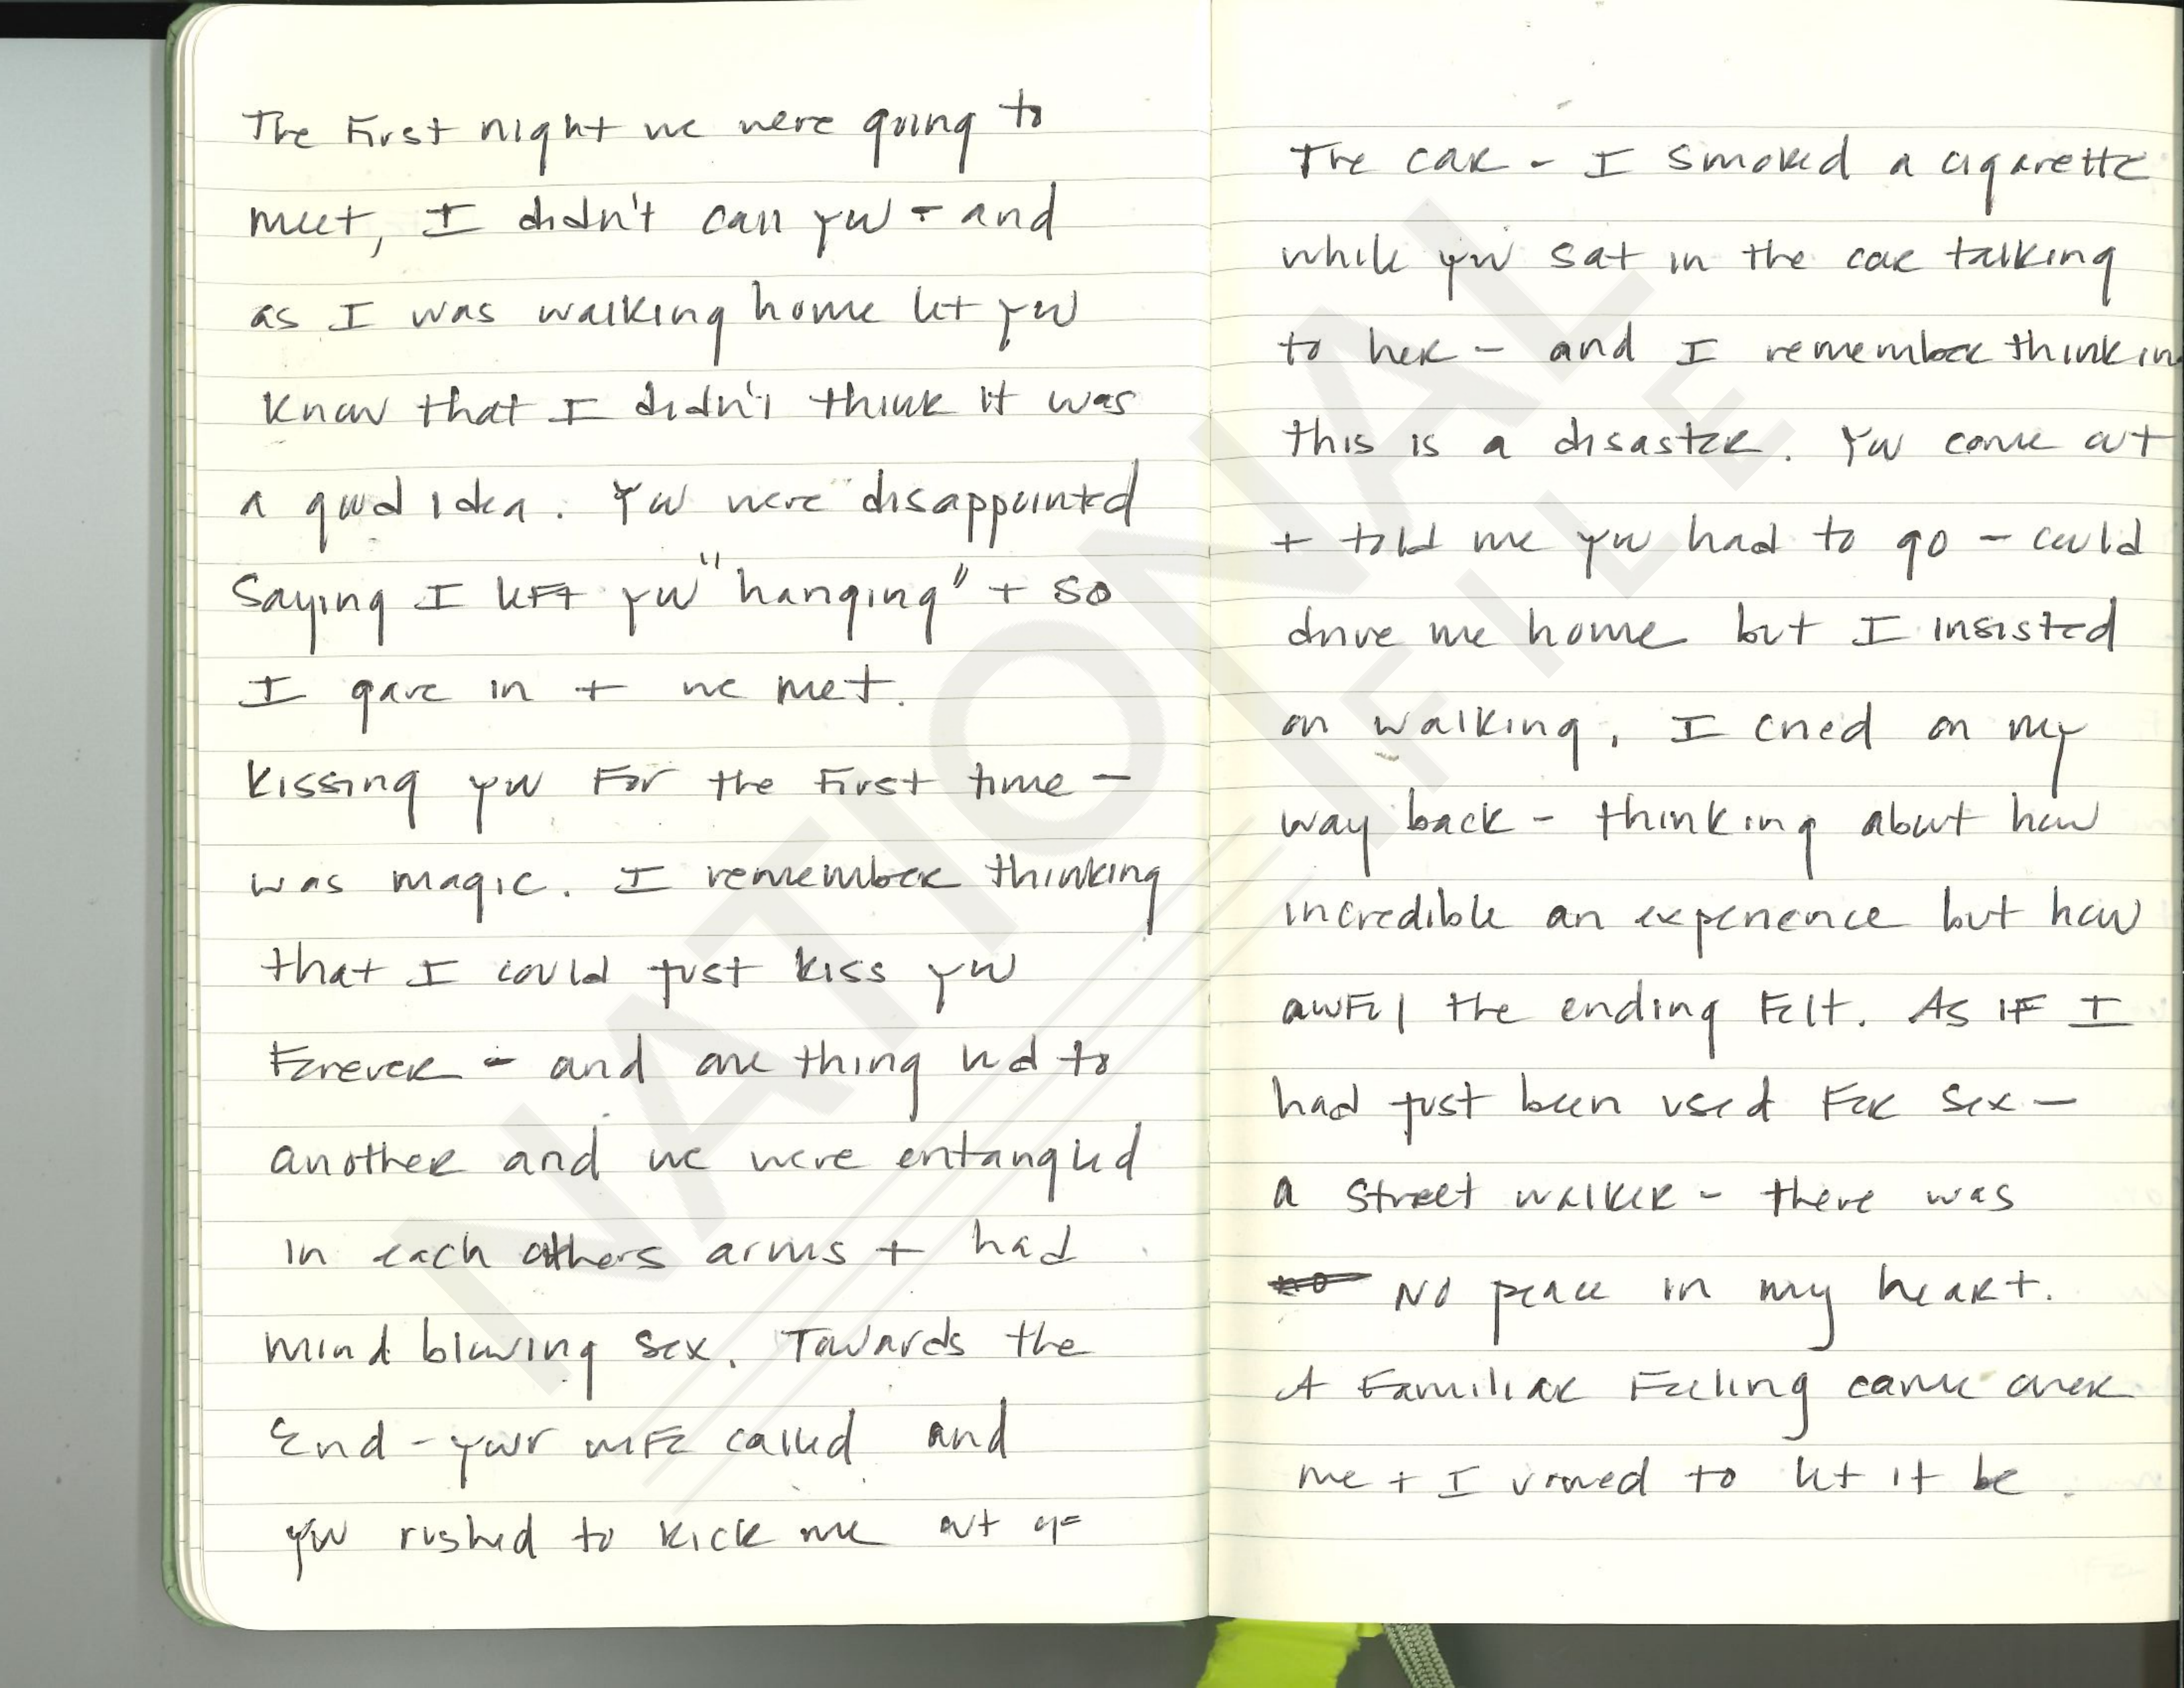 The First night we were going to
meet, I didn't call you - and
as I was walking home let you
know that I didn't think it was
a good idea. You were disappointed
Saying I left you "hanging" + so
I gave in + we met.
Kissing you for the first time -
was magic. I remember thinking
that I could just kiss you
Forever - and one thing led to
another and we were entangled
in each others arms + had
mind blowing sex. Towards the
End - your wife called and
you rushed to kick me out of
The car - I smoked a cigarette
while you sat in the car talking
to her - and I remember thinkin
this is a disaster. You came out
+ told me you had to go - could
drive me home but I insisted
on walking. I cried on my
way back - thinking about how
incredible an experience but how
awful the ending felt. As if I
had just been used for sex -
a street walker - there was
no No peace in my heart.
A Familiar Feeling came over
me + I vowed to let it be.
NATIONAL
FILE